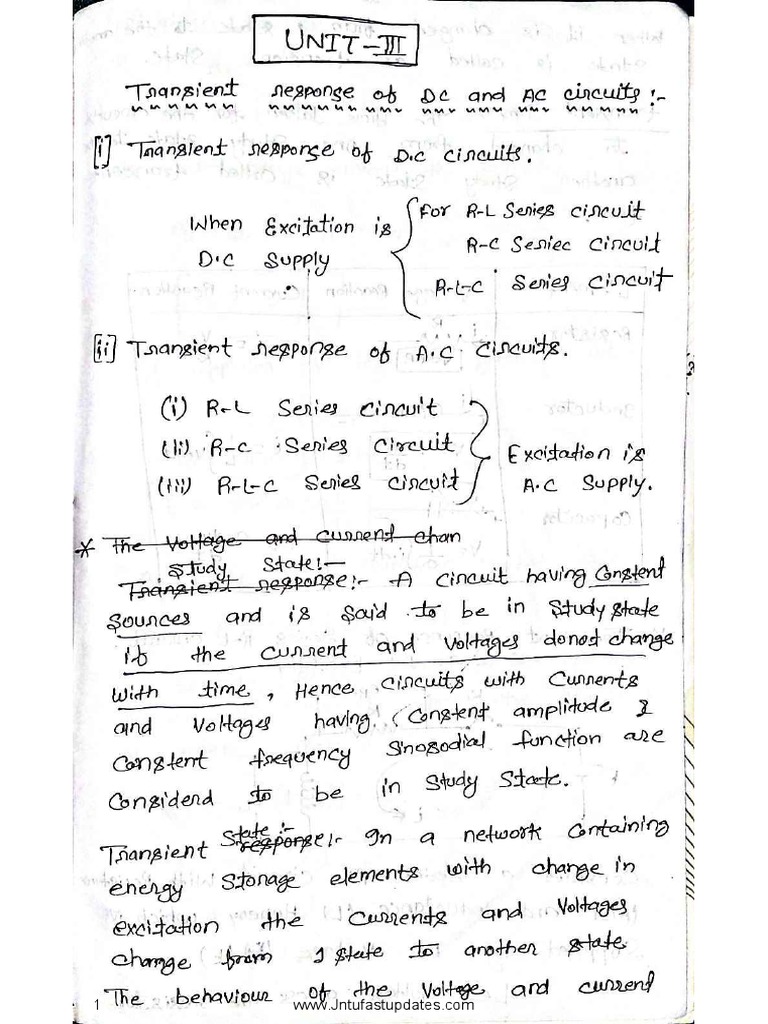 UNIT-III
Transient response of DC and AC circuits:-
[i] Transient response of D.C circuits.
When Excitation is
D.C Supply
For R-L Series circuit
R-C Seriec Circuit
R-L-C Series Circuit
[ii] Transient response of A.C Circuits.
(i) R-L Series Circuit
(ii) R-C Series Circuit
(iii) R-L-C Series Circuit
Excitation is
A.C Supply.
* The Voltage and Current chan
Study State:-
Transient response:- A Circuit having Constent
Sources and is said to be in Study state
if the current and Voltages donot change
with time, Hence Circuits with Currents
and Voltages having (Constent amplitude &
Constent frequency Sinosodial function are
Considerd to be in Study State.
State:-
Transient response:- In a network Containing
energy Storage elements with change in
excitation the Currents and Voltages
change from 1 state to another state
The behaviour of the Voltage and current
1
www.Jntufastupdates.com